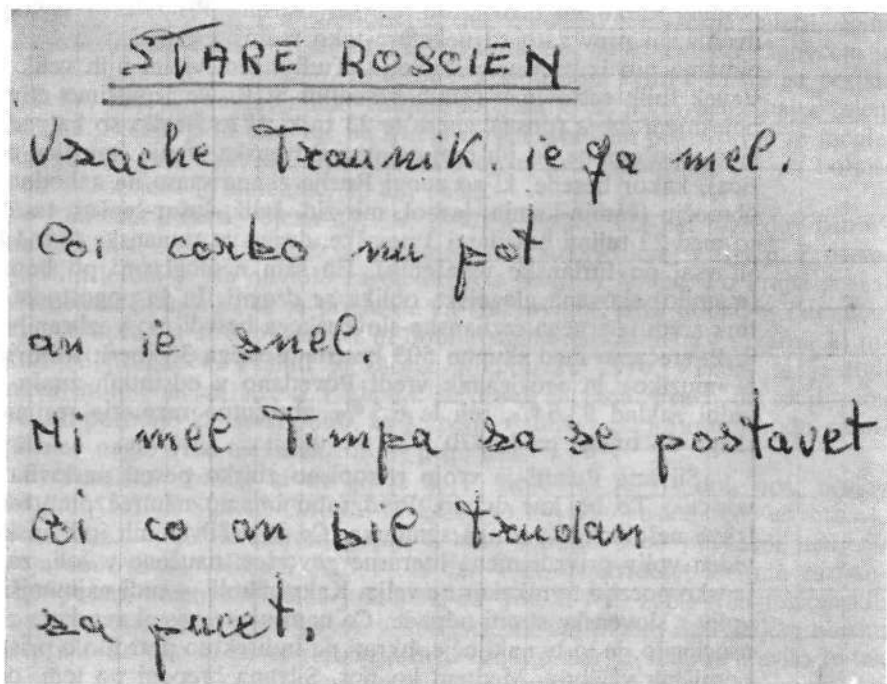 STARE ROSCIEN
Vsache Traunik. ie ga mel.
Coi corbo nu pot
an ie snel.
Ni mel timpa sa se postavet
Coi co an bil trudan
sa pucet.